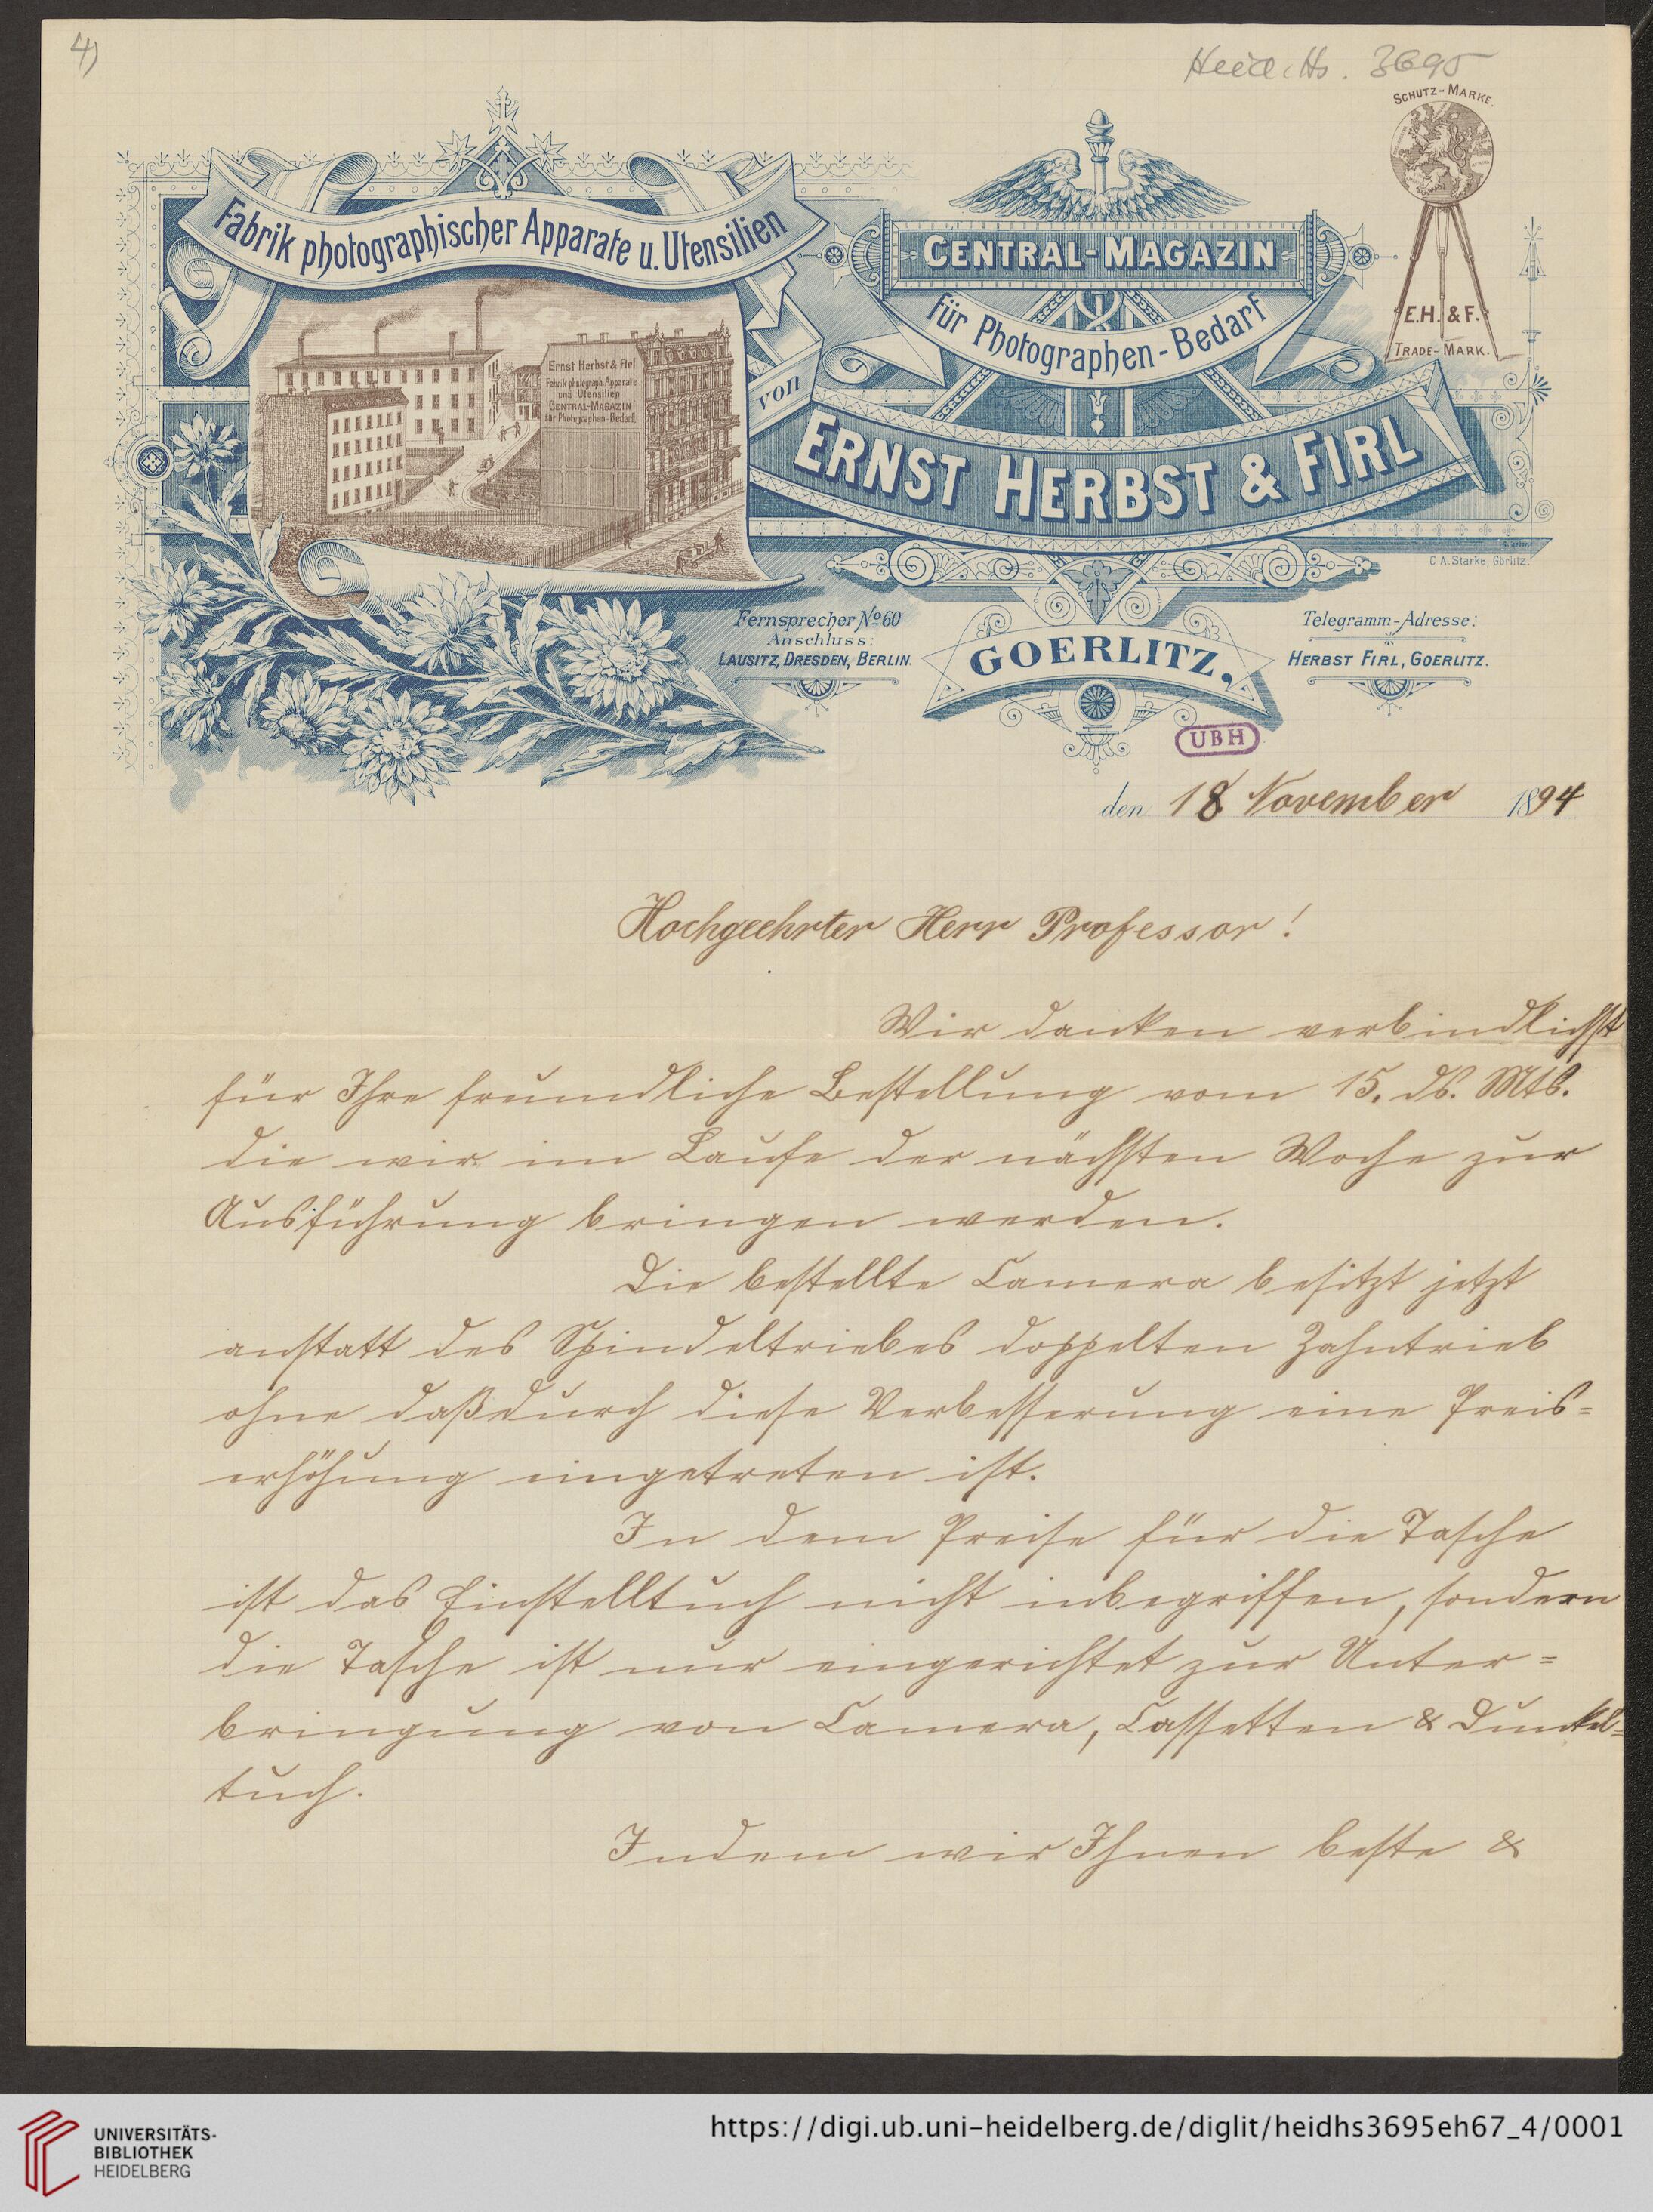 4)
Heid. Hs. 3695
SCHUTZ-MARKE.
E.H. & F.
TRADE-MARK.
Fabrik photographischer Apparate u. Utensilien
Ernst Herbst & Firl
Fabrik photograph. Apparate
und Utensilien
CENTRAL-MAGAZIN
für Photographen-Bedarf.
von
CENTRAL-MAGAZIN
für Photographen-Bedarf
ERNST HERBST & FIRL
C.A. Starke, Görlitz.
Fernsprecher No 60
Anschluss:
LAUSITZ, DRESDEN, BERLIN.
GOERLITZ,
Telegramm-Adresse:
HERBST FIRL, GOERLITZ.
UBH
den 18 November 1894
Hochgeehrter Herr Professor!
Wir danken verbindlichst
für Ihre freundliche Bestellung vom 15. ds. Mts.
die wir im Laufe der nächsten Woche zur
Ausführung bringen werden.
Die bestellte Camera besitzt jetzt
anstatt des Spindeltriebes doppelten Zahntrieb
ohne daß durch diese Verbesserung eine Preis=
erhöhung eingetreten ist.
In dem Preise für die Tasche
ist das Einstelltuch nicht inbegriffen, sondern
die Tasche ist nur eingerichtet zur Unter=
bringung von Camera, Cassetten & Dunkel=
tuch.
Indem wir Ihnen beste &
UNIVERSITÄTS-
BIBLIOTHEK
HEIDELBERG
https://digi.ub.uni-heidelberg.de/diglit/heidhs3695eh67_4/0001